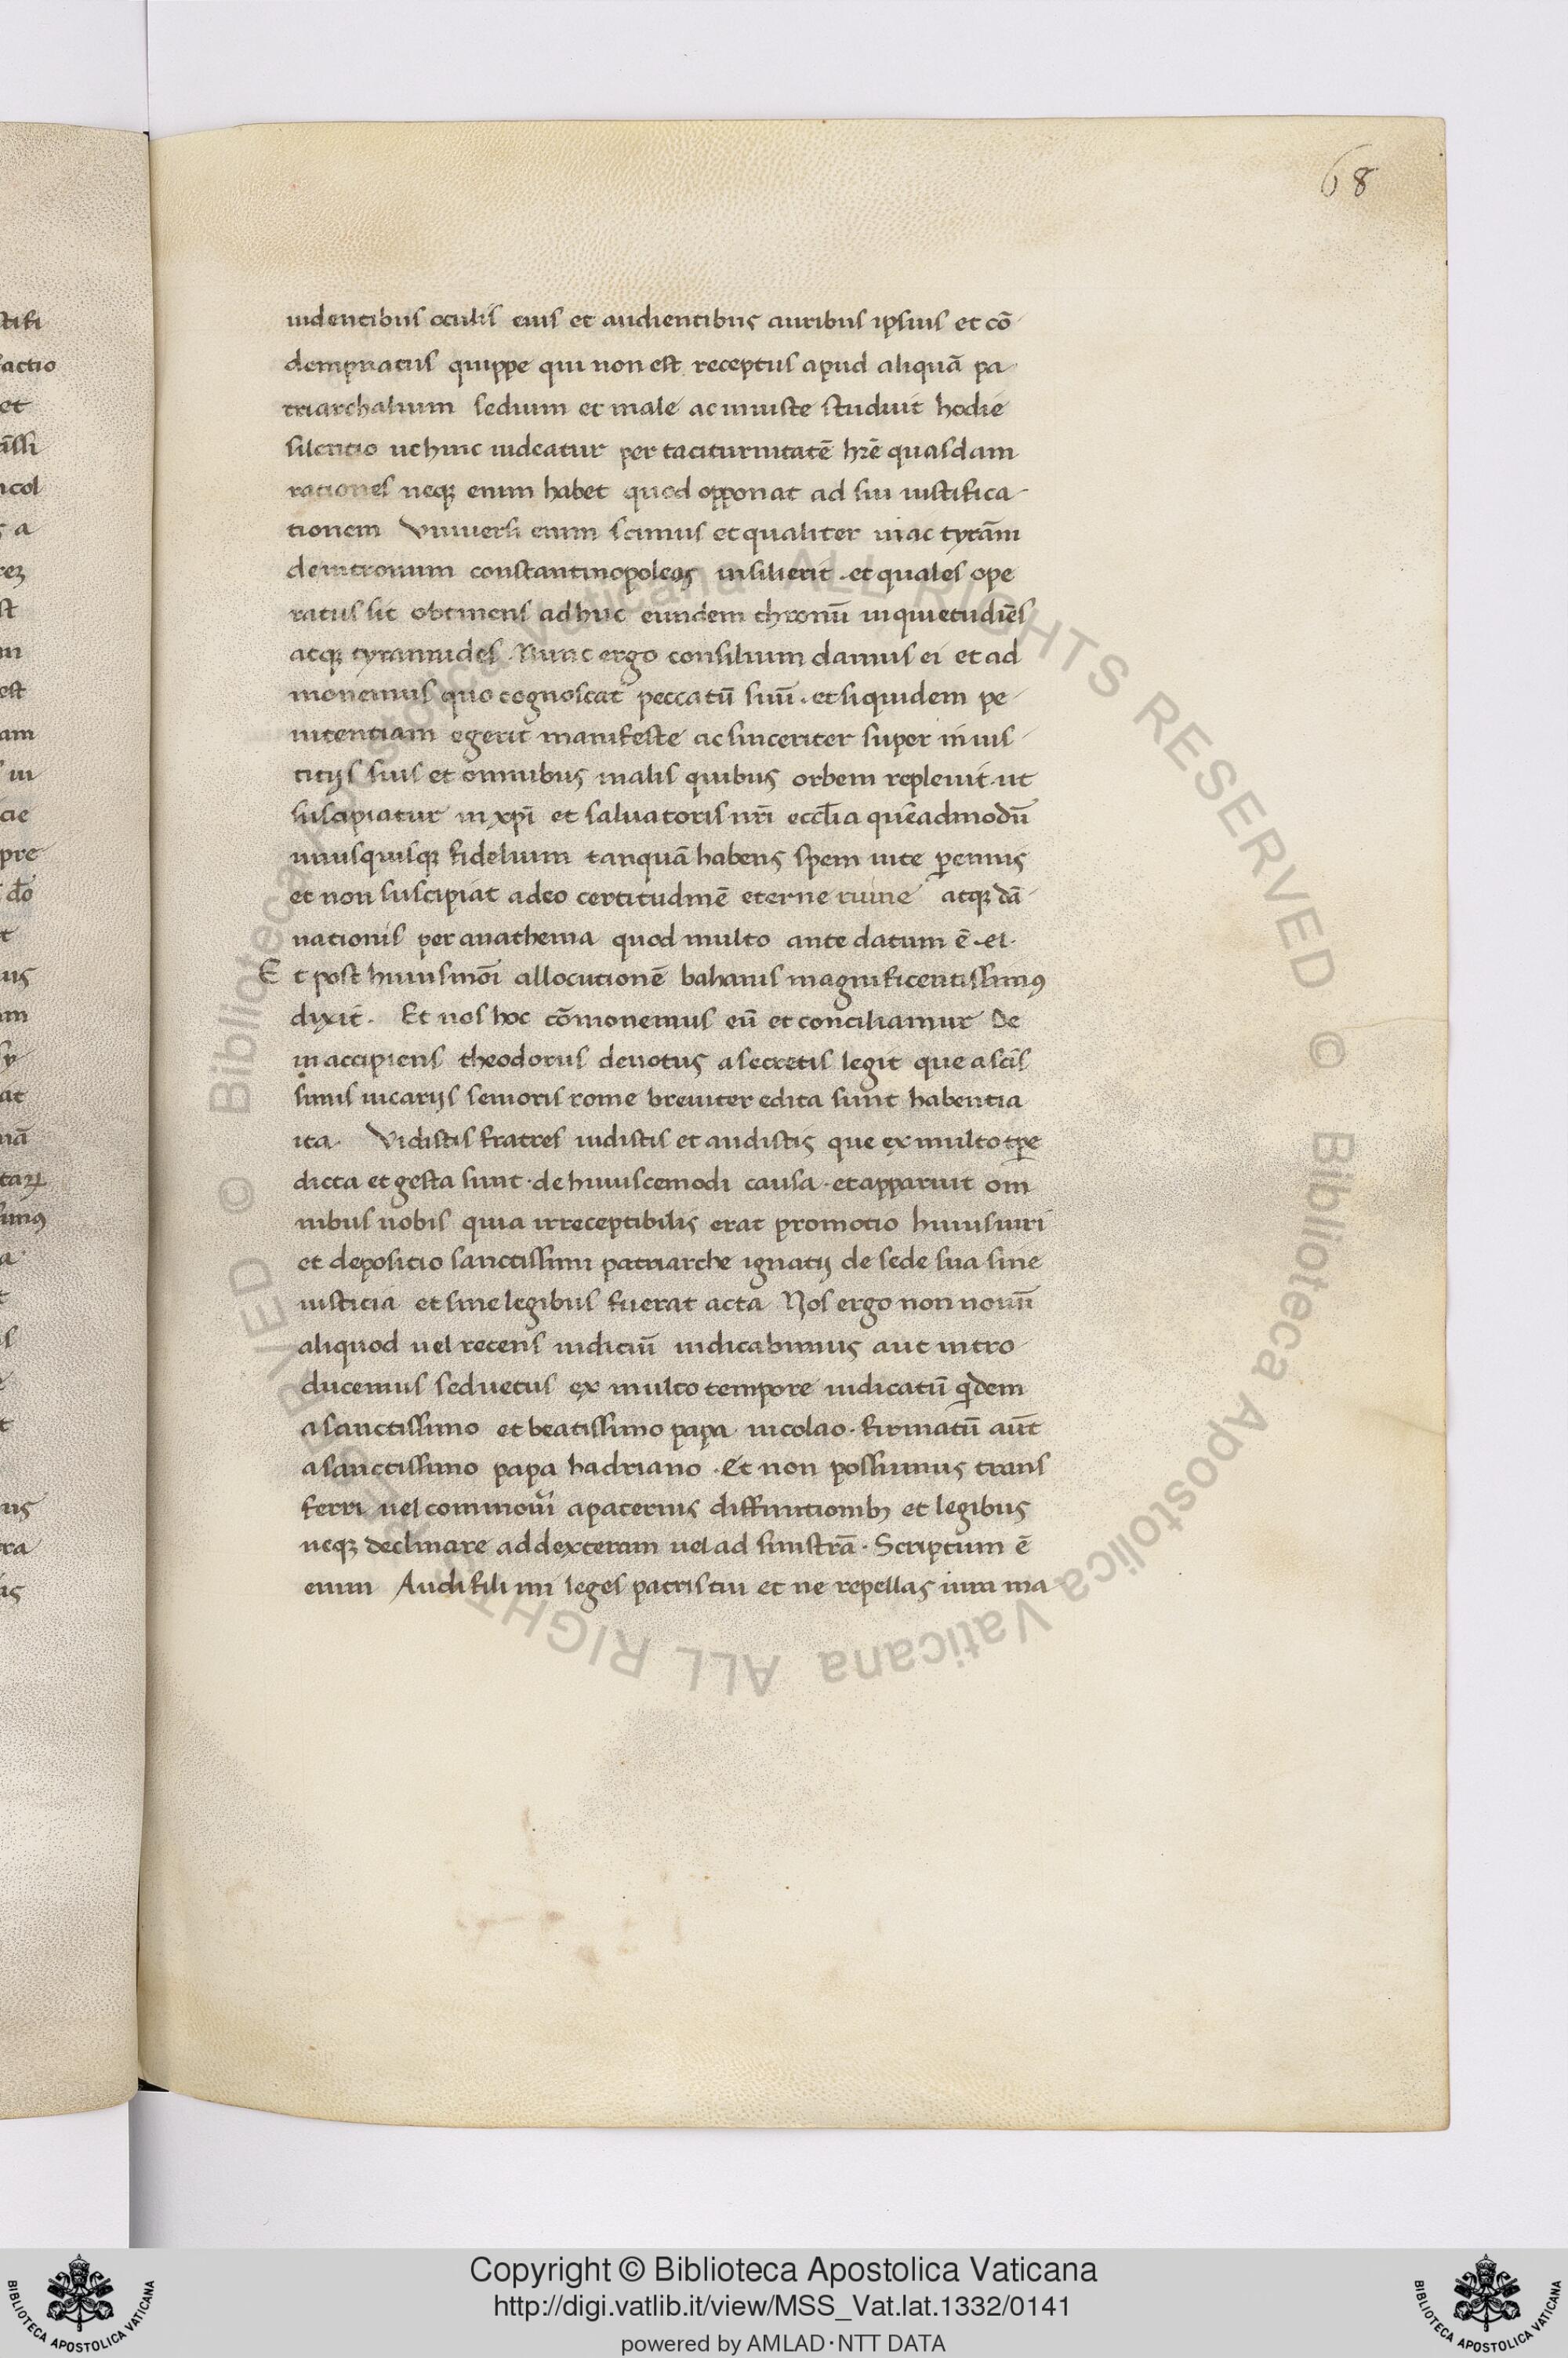 68
uidentibus oculis eius et audientibus auribus ipsius et cō
dempnatus quippe qui non est receptus apud aliquā pa
triarchalium sedium et male ac iniuste studuit hodie
silentio ut hinc uideatur per taciturnitatē hrē quasdam
rationes neqꝫ enim habet quod opponat ad sui iustifica
tionem Vniuersi enim scimus et qualiter in ac tyrām
de in tronum constantinopoleos insilierit . et quales ope
ratus sit obtinens ad huc eundem thronū inquietudiēs
atqꝫ tyrannides . Nunc ergo consilium damus ei et ad
monemus quo cognoscat peccatū suū . et siquidem pe
nitentiam egerit manifeste ac sinceriter super in ius
titijs suis et omnibus malis quibus orbem repleuit . ut
suscipiatur in xp̄i et saluatoris nr̄i eccl̄ia quēadmodū
unusquisqꝫ fidelium tanquā habens spem uite ꝑennis
et non suscipiat adeo certitudinē eterne ruine atqꝫ dā
nationis per anathema quod multo ante datum ē . ei .
E t post huiusmōi allocutionē bahanis magnificentissimꝰ
dixit . Et nos hoc cōmonemus eū et conciliamur De
in accipiens theodorus deuotus a secretis legit que a scīs
simis uicarijs senioris rome breuiter edita sunt habentia
ita . Vidistis fratres uidistis et audistis que ex multo tꝑe
dicta et gesta sunt . de huiuscemodi causa . et apparuit om
nibus nobis quia irreceptibilis erat promotio huius uiri
et depositio sanctissimi patriarche ignatij de sede sua sine
iusticia et sine legibus fuerat acta Nos ergo non nouū
aliquod uel recens iudiciū iudicabimus aut intro
ducemus sed uetus ex multo tempore iudicatū qͥdem
a sanctissimo et beatissimo papa nicolao . firmatū aūt
a sanctissimo papa hadriano . Et non possumus trans
ferri uel commoūi a paternis diffinitionibꝫ et legibus
neqꝫ declinare ad dexteram uel ad sinistrā . Scriptum ē
enim Audi fili mi leges patris tui et ne repellas iura ma
Copyright © Biblioteca Apostolica Vaticana
http://digi.vatlib.it/view/MSS_Vat.lat.1332/0141
powered by AMLAD·NTT DATA